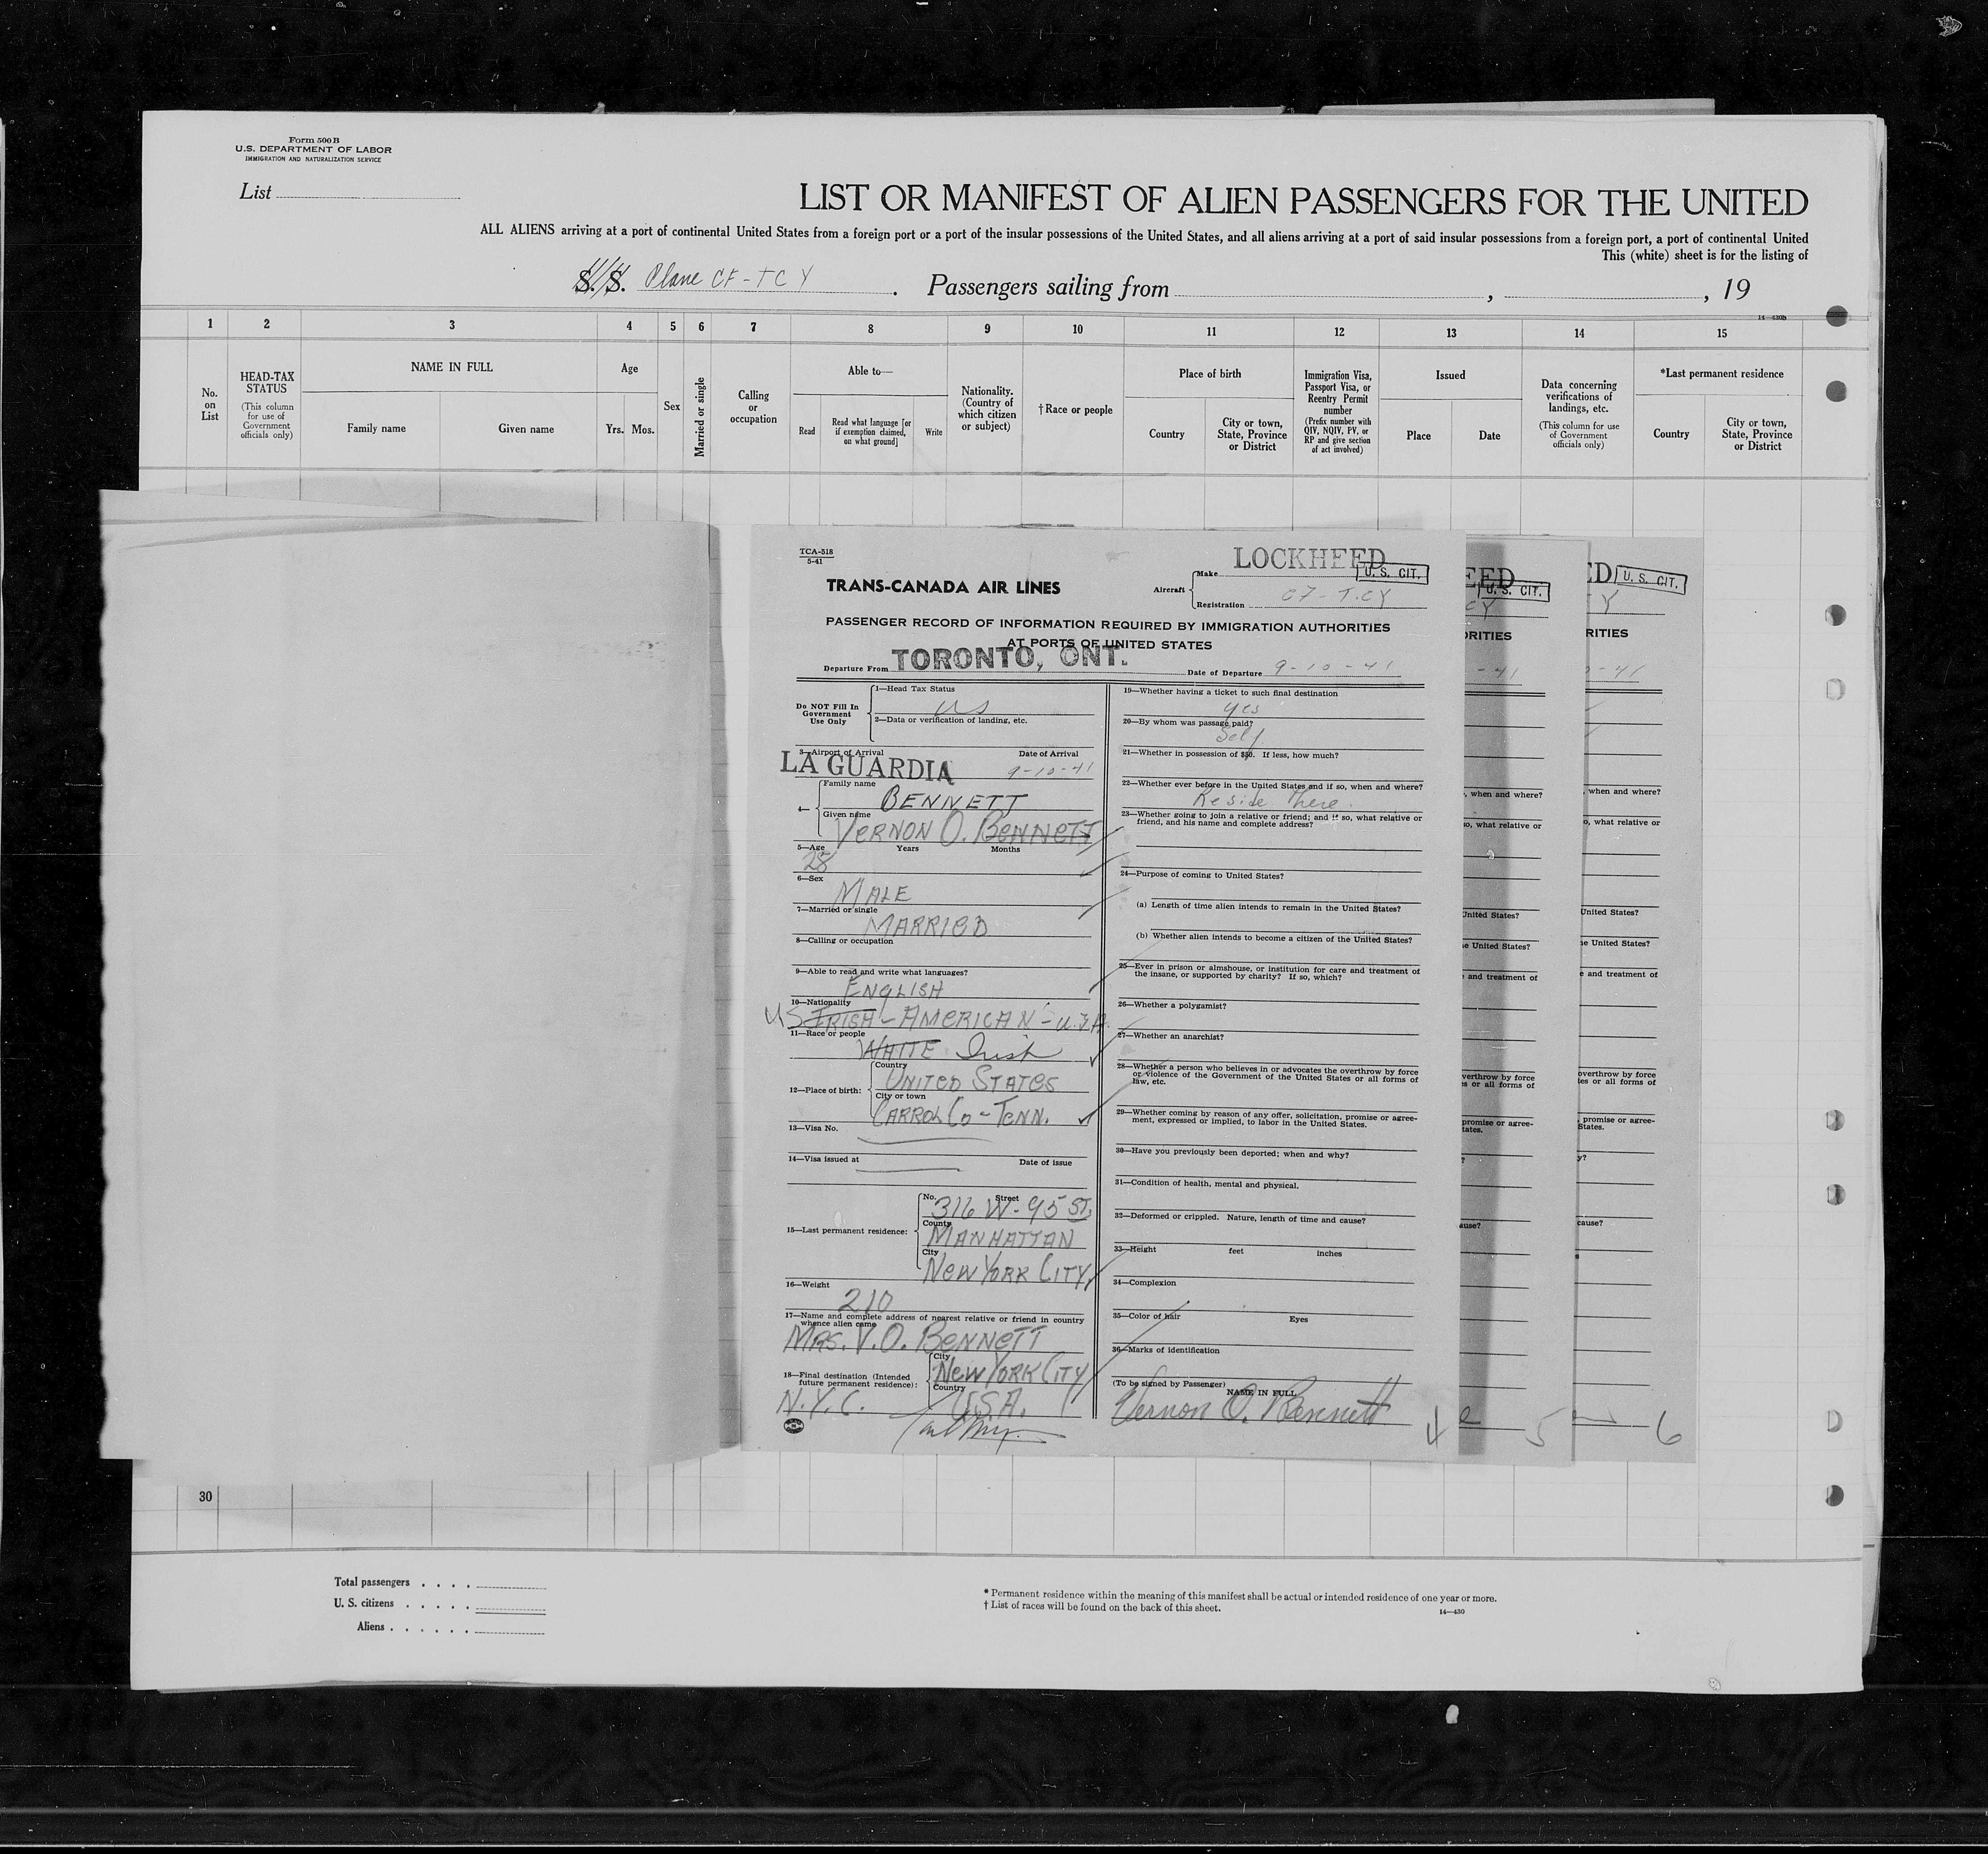 Form 500 B
U.S. DEPARTMENT OF LABOR
IMMIGRATION AND NATURALIZATION SERVICE
List
LIST OR MANIFEST OF ALIEN PASSENGERS FOR THE UNITED
ALL ALIENS arriving at a port of continental United States from a foreign port or a port of the insular possessions of the United States, and all aliens arriving at a port of said insular possessions from a foreign port, a port of continental United
This (white) sheet is for the listing of
S.S. Plane CF-TCY . Passengers sailing from , , 19
14—430b
1 2 3 4 5 6 7 8 9 10 11 12 13 14 15
No. on List
HEAD-TAX STATUS
(This column for use of Government officials only)
NAME IN FULL
Family name Given name
Age
Yrs. Mos.
Sex
Married or single
Calling or occupation
Able to—
Read
Read what language [or if exemption claimed, on what ground]
Write
Nationality. (Country of which citizen or subject)
†Race or people
Place of birth
Country
City or town, State, Province or District
Immigration Visa, Passport Visa, or Reentry Permit number
(Prefix number with QIV, NQIV, PV, or RP and give section of act involved)
Issued
Place Date
Data concerning verifications of landings, etc.
(This column for use of Government officials only)
*Last permanent residence
Country
City or town, State, Province or District
TCA-518
5-41
TRANS-CANADA AIR LINES
Aircraft
Make LOCKHEED
U. S. CIT.
Registration CF-TCY
PASSENGER RECORD OF INFORMATION REQUIRED BY IMMIGRATION AUTHORITIES
AT PORTS OF UNITED STATES
Departure From TORONTO, ONT. Date of Departure 9-10-41
Do NOT Fill In
Government
Use Only
1—Head Tax Status
US
2—Data or verification of landing, etc.
3—Airport of Arrival Date of Arrival
LA GUARDIA 9-10-41
4—
Family name
BENNETT
Given name
VERNON O. BENNETT
5—Age Years Months
28
6—Sex
MALE
7—Married or single
MARRIED
8—Calling or occupation
9—Able to read and write what languages?
ENGLISH
10—Nationality
US IRISH-AMERICAN-U.S.A.
11—Race or people
WHITE Irish
12—Place of birth:
Country
UNITED STATES
City or town
CARROL CO-TENN.
13—Visa No.
14—Visa issued at Date of issue
15—Last permanent residence:
No. Street
316 W-95 ST.
County
MANHATTAN
City
NEW YORK CITY
16—Weight
210
17—Name and complete address of nearest relative or friend in country
whence alien came
MRS. V.O. BENNETT
18—Final destination (Intended
future permanent residence):
City
NEW YORK CITY
Country
N.Y.C. U.S.A.
19—Whether having a ticket to such final destination
yes
20—By whom was passage paid?
Self
21—Whether in possession of $50. If less, how much?
22—Whether ever before in the United States and if so, when and where?
Reside there.
23—Whether going to join a relative or friend; and if so, what relative or
friend, and his name and complete address?
24—Purpose of coming to United States?
(a) Length of time alien intends to remain in the United States?
(b) Whether alien intends to become a citizen of the United States?
25—Ever in prison or almshouse, or institution for care and treatment of
the insane, or supported by charity? If so, which?
26—Whether a polygamist?
27—Whether an anarchist?
28—Whether a person who believes in or advocates the overthrow by force
or violence of the Government of the United States or all forms of
law, etc.
29—Whether coming by reason of any offer, solicitation, promise or agree-
ment, expressed or implied, to labor in the United States.
30—Have you previously been deported; when and why?
31—Condition of health, mental and physical.
32—Deformed or crippled. Nature, length of time and cause?
33—Height feet inches
34—Complexion
35—Color of hair Eyes
36—Marks of identification
(To be signed by Passenger)
NAME IN FULL
Vernon O. Bennett
4
EED
U. S. CIT.
CY
ORITIES
-41
, when and where?
so, what relative or
United States?
e United States?
and treatment of
overthrow by force
s or all forms of
promise or agree-
tates.
?
ause?
5
ED
U. S. CIT.
Y
RITIES
0-41
, when and where?
o, what relative or
United States?
he United States?
e and treatment of
overthrow by force
tes or all forms of
, promise or agree-
States.
y?
cause?
6
30
Total passengers . . . .
U. S. citizens . . . . .
Aliens . . . . . .
* Permanent residence within the meaning of this manifest shall be actual or intended residence of one year or more.
† List of races will be found on the back of this sheet.
14—430